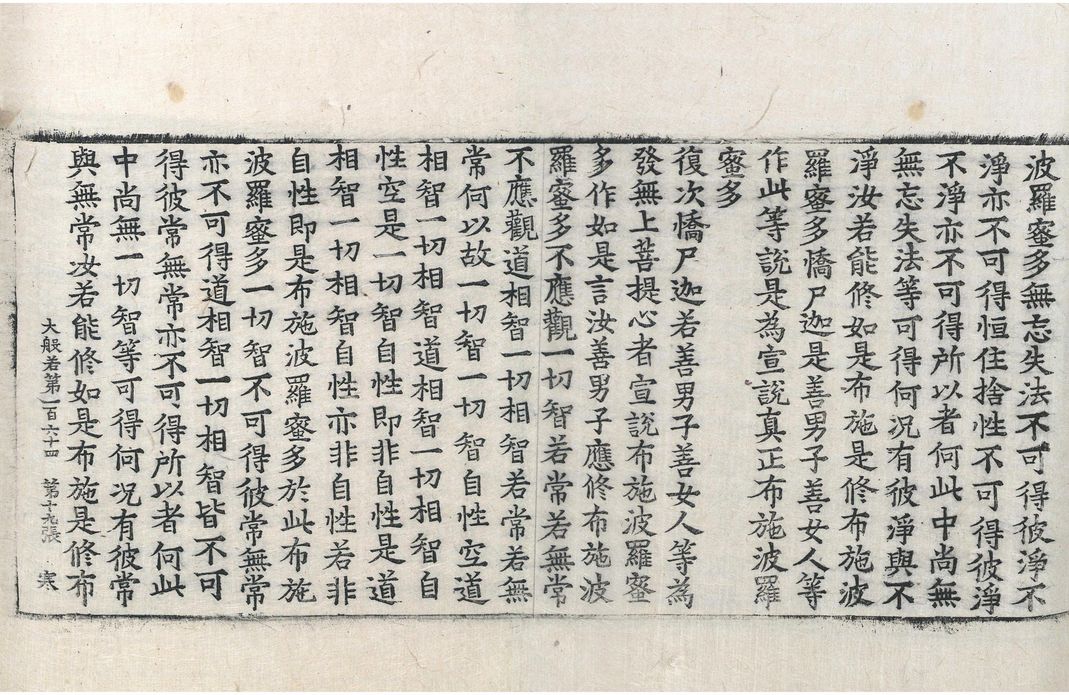 波羅蜜多無忘失法不可得彼淨不
淨亦不可得恒住捨性不可得彼淨
不淨亦不可得所以者何此中尚無
無忘失法等可得何况有彼淨與不
淨汝若能修如是布施是修布施波
羅蜜多憍尸迦是善男子善女人等
作此等說是為宣說真正布施波羅
蜜多
復次憍尸迦若善男子善女人等為
發無上菩提心者宣說布施波羅蜜
多作如是言汝善男子應修布施波
羅蜜多不應觀一切智若常若無常
不應觀道相智一切相智若常若無
常何以故一切智一切智自性空道
相智一切相智道相智一切相智自
性空是一切智自性即非自性是道
相智一切相智自性亦非自性若非
自性即是布施波羅蜜多於此布施
波羅蜜多一切智不可得彼常無常
亦不可得道相智一切相智皆不可
得彼常無常亦不可得所以者何此
中尚無一切智等可得何况有彼常
與無常汝若能修如是布施是修布
大般若第一百六十四 第十九張 寒